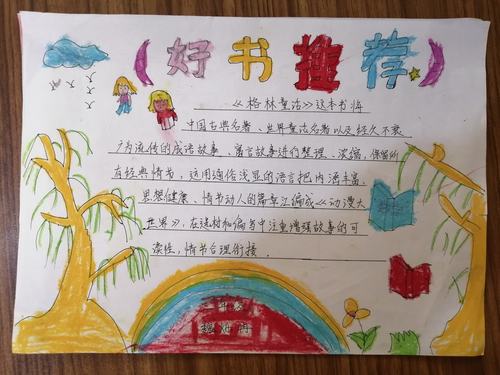 好书推荐
《格林童话》这本书将
中国古典名著、世界童话名著以及经久不衰
广为流传的成语故事、寓言故事进行整理、浓缩,保留所
有经典情节,运用通俗浅显的语言把内涵丰富、
思想健康、情节动人的篇章汇编成《动漫大
世界》,在选材和编写中注重增强故事的可
读性,情节合理衔接。